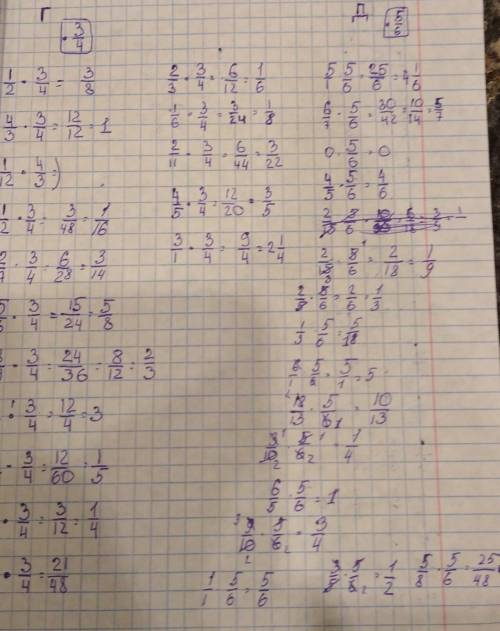 Г
· 3/4
1/2 · 3/4 = 3/8
4/3 · 3/4 = 12/12 = 1
1/12 · 4/3 = )
1/12 · 3/4 = 3/48 = 1/16
2/7 · 3/4 = 6/28 = 3/14
· 3/4 = 15/24 = 5/8
· 3/4 = 24/36 = 8/12 = 2/3
· 3/4 = 12/4 = 3
· 3/4 = 12/60 = 1/5
· 3/4 = 3/12 = 1/4
· 3/4 = 21/48
2/3 · 3/4 = 6/12 = 1/6
1/6 · 3/4 = 3/24 = 1/8
2/11 · 3/4 = 6/44 = 3/22
4/5 · 3/4 = 12/20 = 3/5
3/1 · 3/4 = 9/4 = 2 1/4
Д
· 5/6
5/1 · 5/6 = 25/6 = 4 1/6
6/7 · 5/6 = 30/42 = 10/14 = 5/7
0 · 5/6 = 0
4/5 · 5/6 = 4/6
2/15 · 5/6 = 2/18 = 1/9
2/5 · 5/6 = 2/6 = 1/3
1/3 · 5/6 = 5/18
6/1 · 5/6 = 5/1 = 5
12/13 · 5/6 = 10/13
3/10 · 5/6 = 1/4
6/5 · 5/6 = 1
9/10 · 5/6 = 3/4
1/1 · 5/6 = 5/6
3/5 · 5/6 = 1/2
5/8 · 5/6 = 25/48